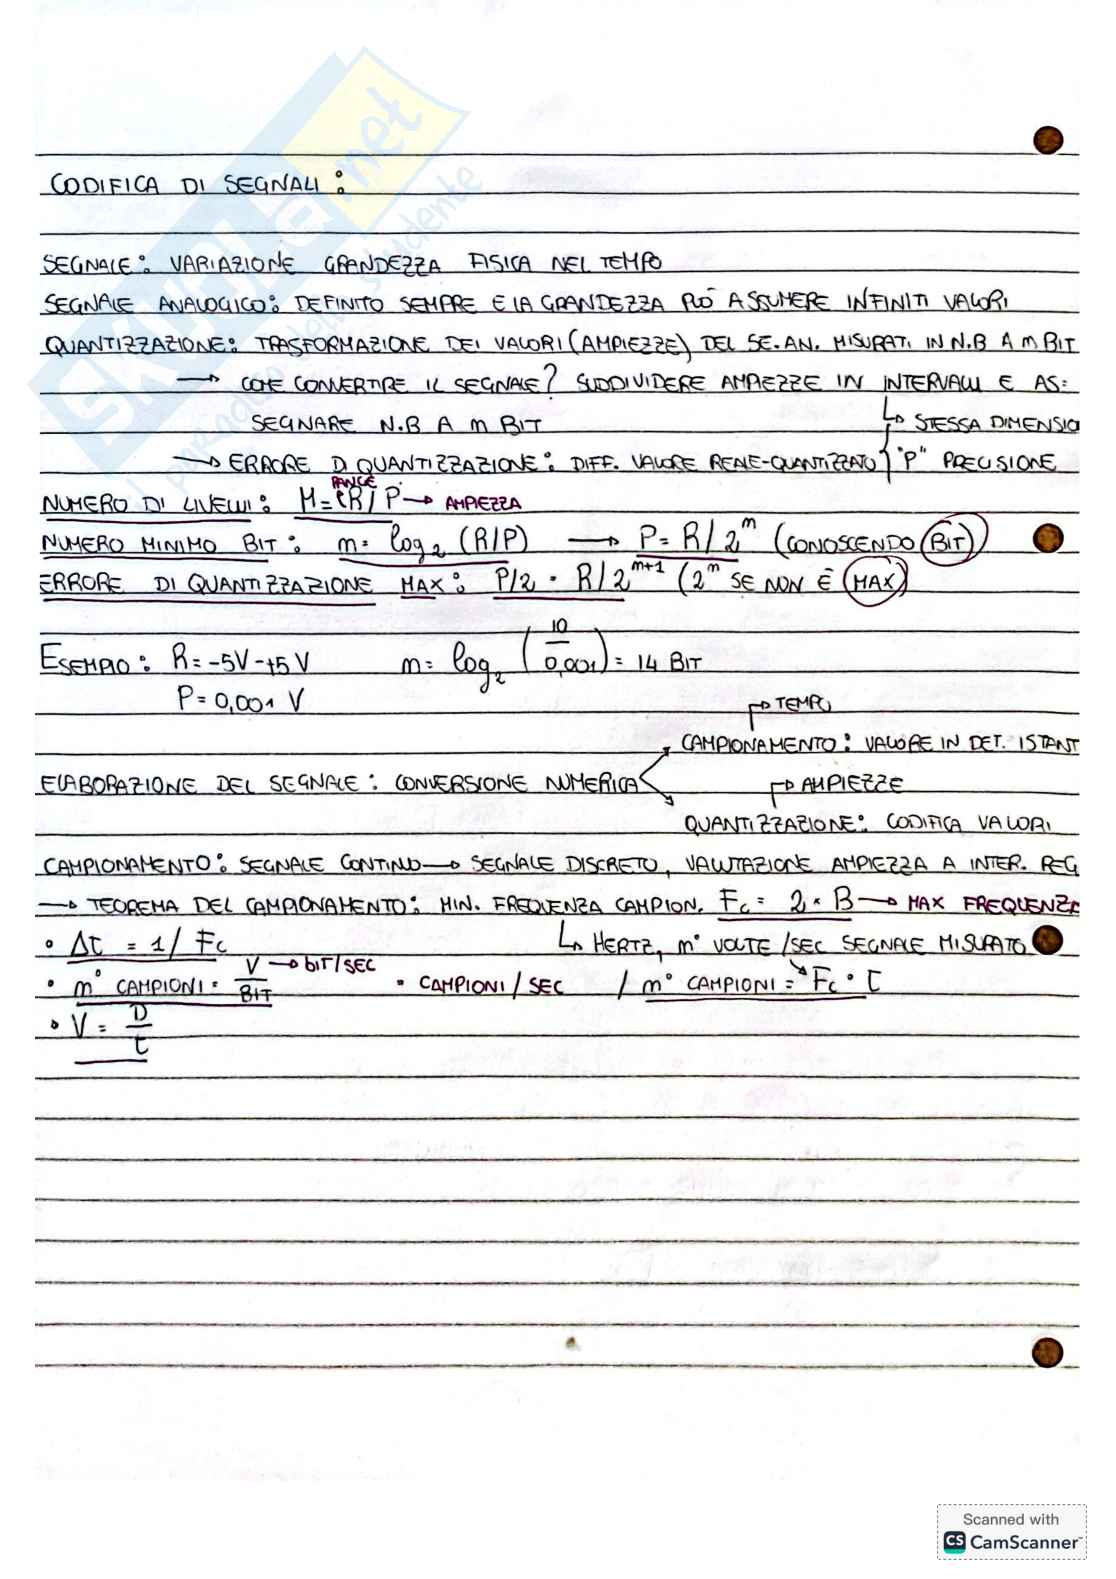 CODIFICA DI SEGNALI:
SEGNALE: VARIAZIONE GRANDEZZA FISICA NEL TEMPO
SEGNALE ANALOGICO: DEFINITO SEMPRE E LA GRANDEZZA PUÒ ASSUMERE INFINITI VALORI
QUANTIZZAZIONE: TRASFORMAZIONE DEI VALORI (AMPIEZZE) DEL SE.AN. MISURATI IN N.B A m BIT
→ COME CONVERTIRE IL SEGNALE? SUDDIVIDERE AMPIEZZE IN INTERVALLI E AS=
SEGNARE N.B A m BIT
↳ STESSA DIMENSIO
→ ERRORE DI QUANTIZZAZIONE: DIFF. VALORE REALE-QUANTIZZATO { "P" PRECISIONE
RANGE
NUMERO DI LIVELLI: M=(R/P → AMPIEZZA
NUMERO MINIMO BIT: m= log₂ (R/P) → P= R/2^m (CONOSCENDO BIT)
ERRORE DI QUANTIZZAZIONE MAX: P/2 = R/2^m+1 (2^m SE NON È MAX)
ESEMPIO: R= -5V-+5V m= log₂ (10/0,001) = 14 BIT
P= 0,001 V
→ TEMPO
CAMPIONAMENTO: VALORE IN DET. ISTANT
ELABORAZIONE DEL SEGNALE: CONVERSIONE NUMERICA
→ AMPIEZZE
QUANTIZZAZIONE: CODIFICA VALORI
CAMPIONAMENTO: SEGNALE CONTINUO → SEGNALE DISCRETO, VALUTAZIONE AMPIEZZA A INTER. REG
→ TEOREMA DEL CAMPIONAMENTO: MIN. FREQUENZA CAMPION. Fc= 2 × B → MAX FREQUENZA
• Δt = 1/ Fc ↳ HERTZ, m° VOLTE /SEC SEGNALE MISURATO
• m° CAMPIONI = V/BIT → BIT/SEC = CAMPIONI/SEC / m° CAMPIONI = Fc • t
• V = D/t
SKUOLA.net
Scanned with
CS CamScanner